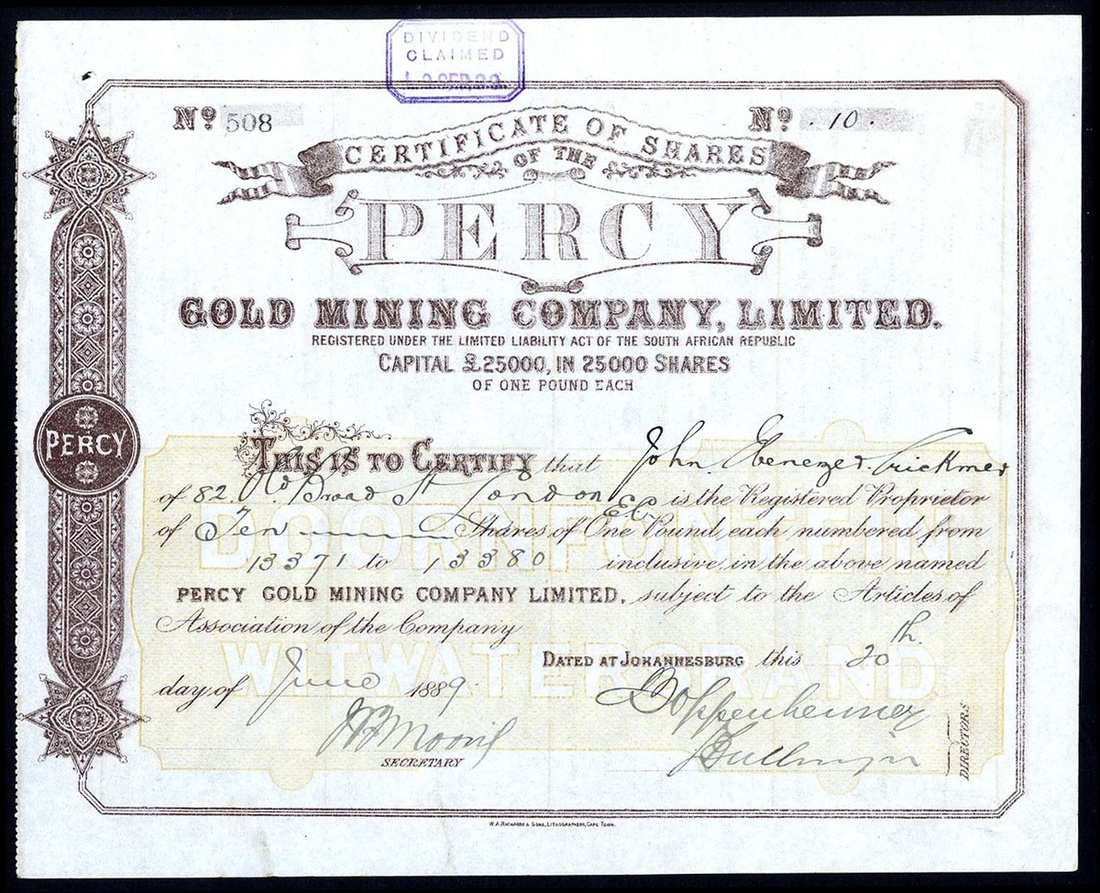 DIVIDEND
CLAIMED
Nº 508
Nº 10.
CERTIFICATE OF SHARES
OF THE
PERCY
GOLD MINING COMPANY, LIMITED.
REGISTERED UNDER THE LIMITED LIABILITY ACT OF THE SOUTH AFRICAN REPUBLIC
CAPITAL £25000, IN 25000 SHARES
OF ONE POUND EACH
PERCY
THIS IS TO CERTIFY that John Ebenezer Crickmer
of 82. Old Broad St London EC is the Registered Proprietor
of Ten Shares of One Pound each numbered from
13371 to 13380 inclusive in the above named
PERCY GOLD MINING COMPANY LIMITED, subject to the Articles of
Association of the Company
DATED AT JOHANNESBURG this 20th
day of June 1889.
Oppenheimer
SECRETARY
DIRECTORS
DOORNFONTEIN
WITWATERSRAND
W. A. RICHARDS & SONS, LITHOGRAPHERS, CAPE TOWN.